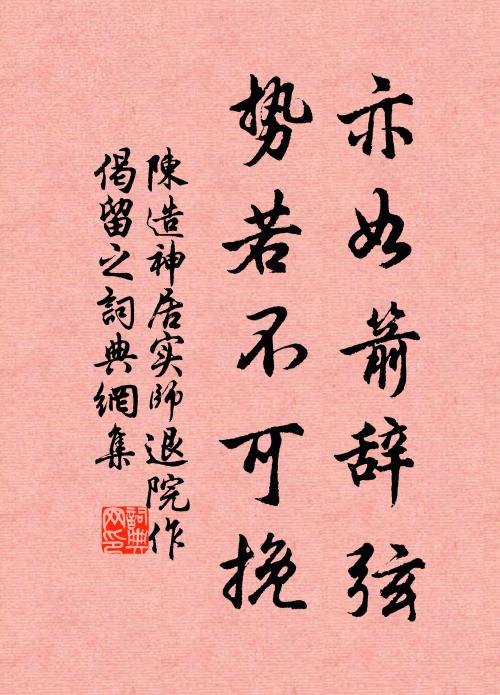 亦如箭辞弦
势若不可挽
陳造神居实師退院作
偈留之詞典網集
詞典网印